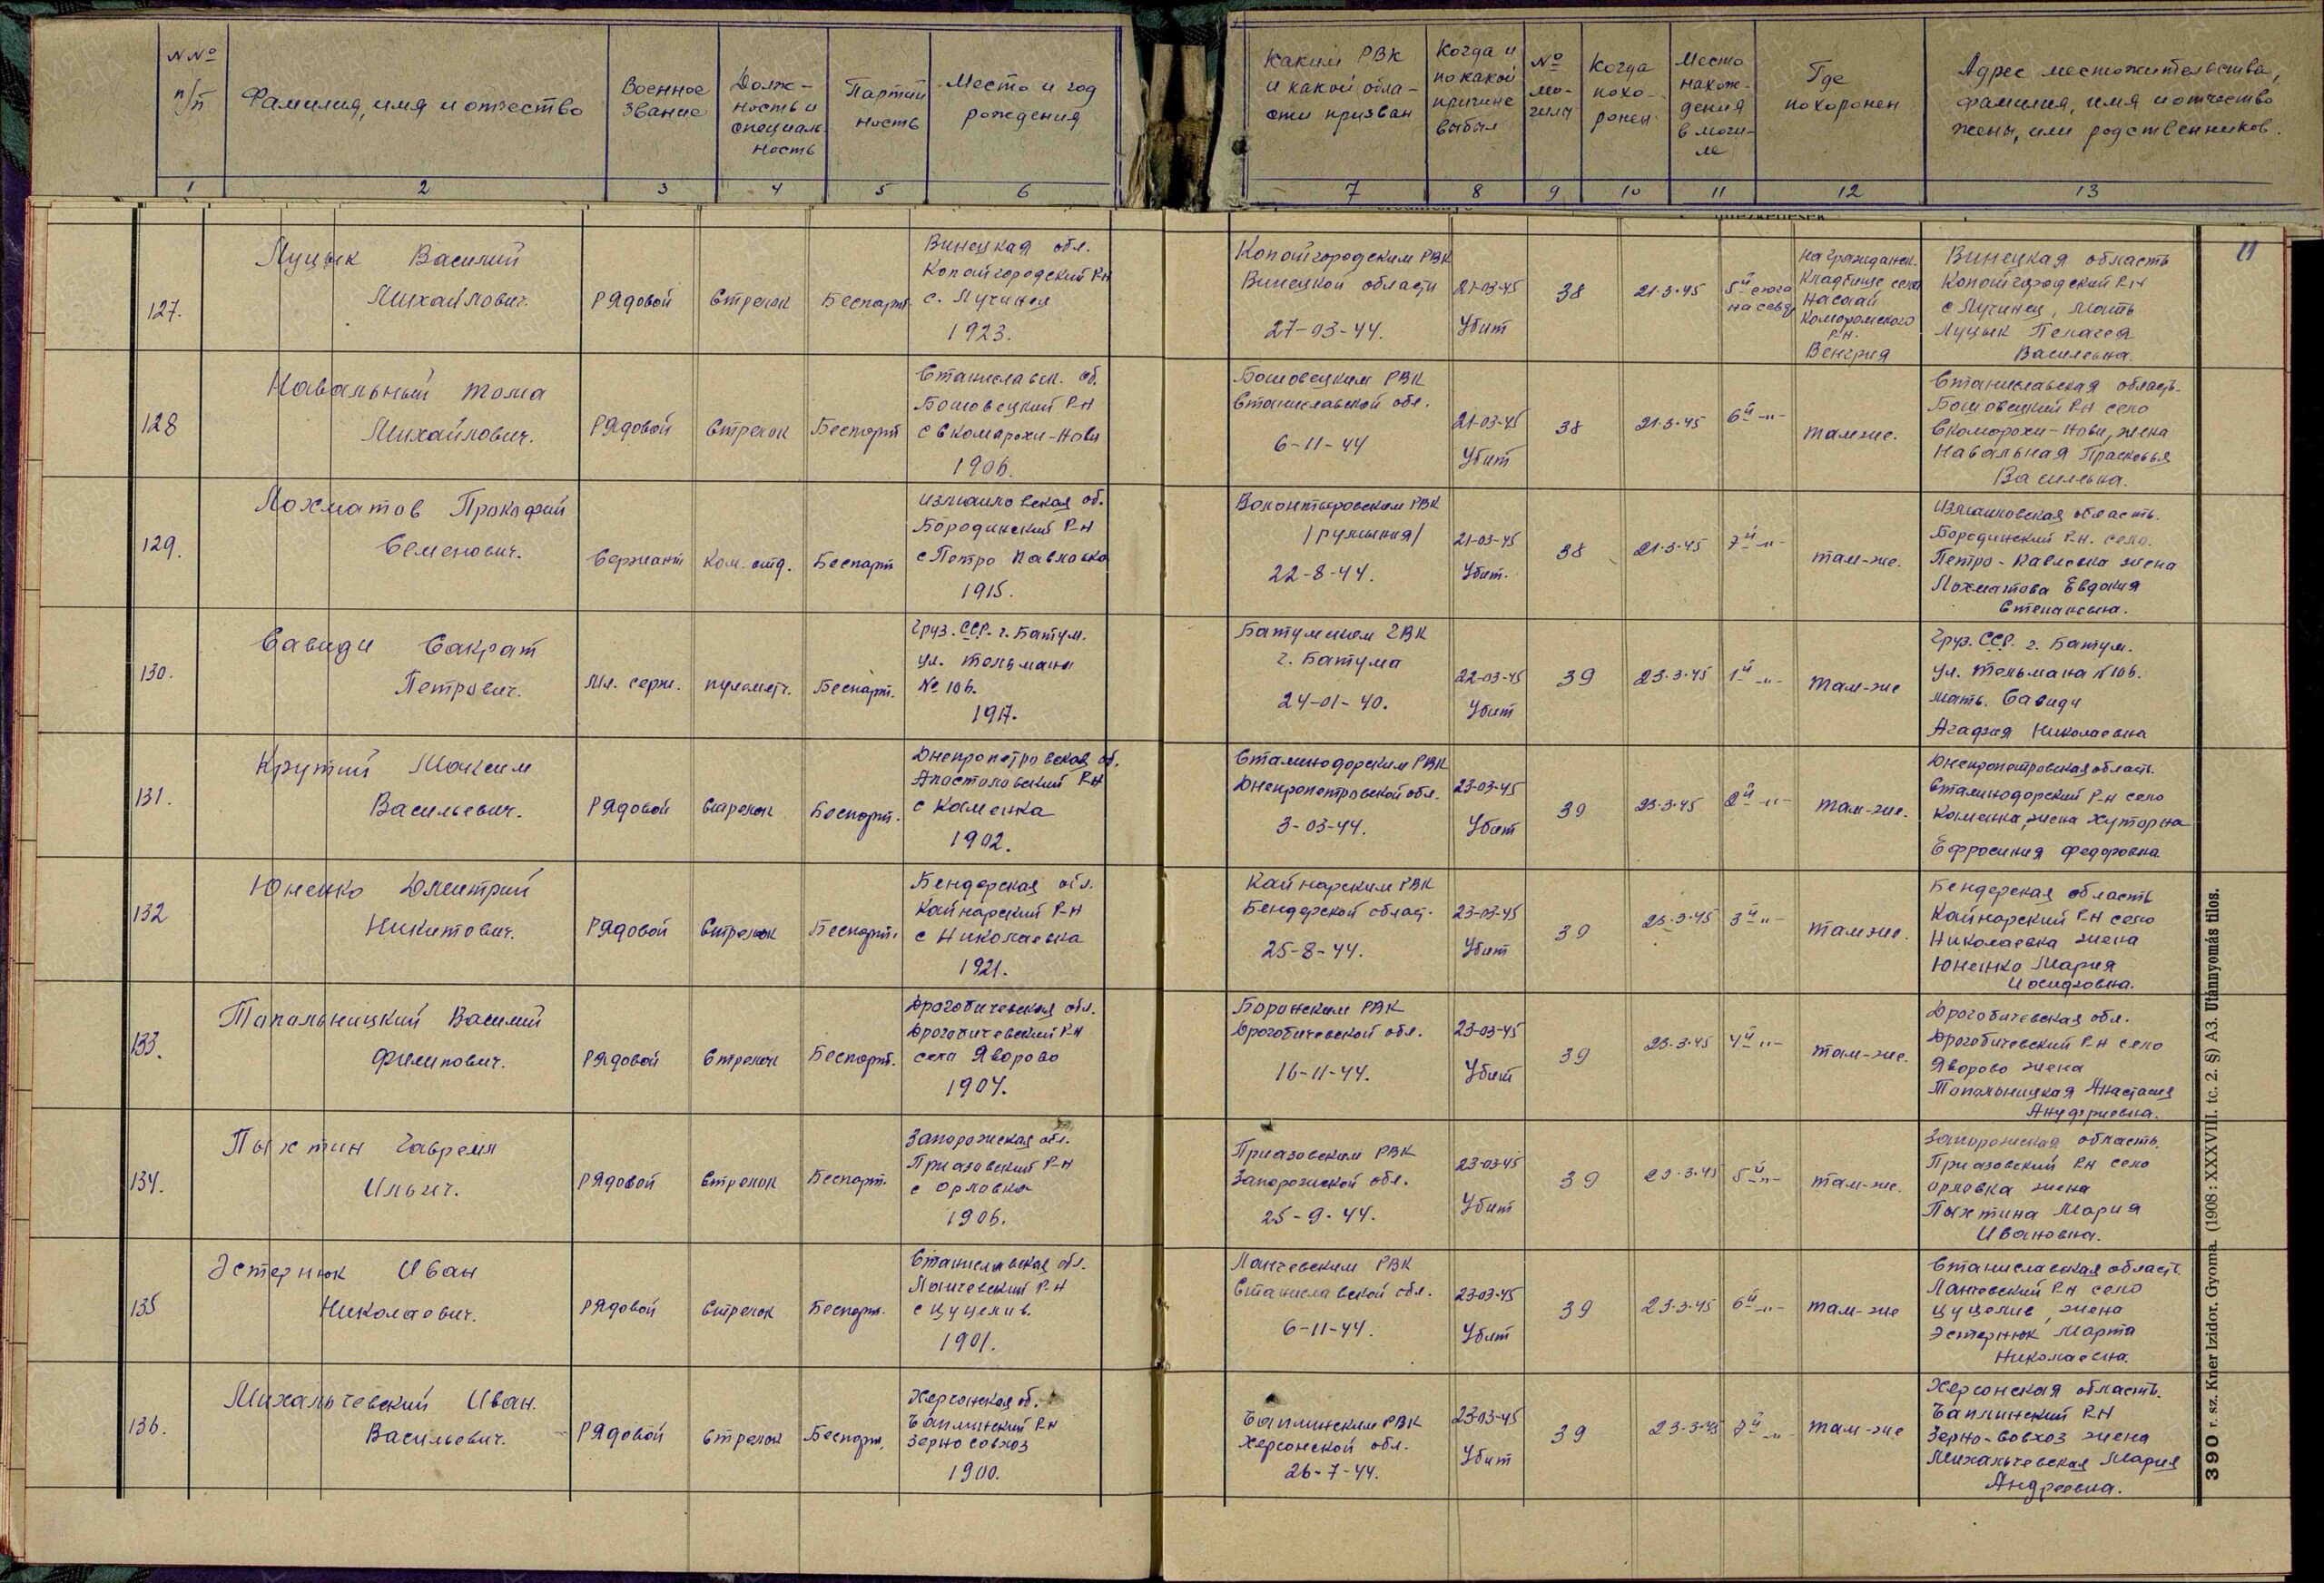 N Nº п/п
Фамилия, имя и отчество
Военное звание
Долж-
ность и
специаль
ность
Партий
ность
Место и год
рождения
Каким РВК
и какой обла-
сти призван
Когда и
по какой
причине
выбыл
№
мо-
гилы
Когда
похо-
ронен
Место
нахож-
дения
в моги-
ле
Где
похоронен
Адрес местожительства,
фамилия, имя и отчество
жены, или родственников.
1 2 3 4 5 6 7 8 9 10 11 12 13
11
127.
Луцык Василий
Михайлович.
Рядовой
Стрелок
Беспарт.
Винецкая обл.
Копайгородский Р-Н
с. Лучинец
1923.
Копайгородским РВК
Винецкой области
27-03-44.
21-03-45
Убит
38
21.3.45
5й с юга
на север
на гражданск.
Кладбище села
Насаай
Комаромского
Р-Н.
Венгрия
Винецкая область
Копайгородский Р-Н
с Лучинец, Мать
Луцык Пелагея
Васильевна.
128
Навальный Тома
Михайлович.
Рядовой
Стрелок
Беспарт
Станиславск. об.
Бошовецкий Р-Н
с Скоморохи-Нови
1906.
Бошовецким РВК
Станиславской обл.
6-11-44
21-03-45
Убит
38
21.3.45
6й -"-
там же.
Станиславская область.
Бошовецкий Р-Н село
Скоморохи-Нови, жена
Навальная Прасковья
Васильевна.
129.
Лохматов Прокофий
Семенович.
Сержант
Ком. отд.
Беспарт
Измаиловская об.
Бородинский Р-Н
с Петро Павловка
1915.
Волонтировским РВК
/румыния/
22-8-44.
21-03-45
Убит.
38
21.3.45
7й -"-
там-же.
Измаиловская область.
Бородинский Р-Н. село.
Петро-Павловка жена
Лохматова Евдокия
Степановна.
130.
Савиди Сакрат
Петрович.
Мл. серж.
пулеметч.
Беспарт.
Груз. ССР. г. Батум.
ул. Тельмана
№ 106.
1917.
Батумским ГВК
г. Батума
24-01-40.
22-03-45
Убит
39
23.3.45
1й -"-
там-же
Груз. ССР. г. Батум.
ул. Тельмана №106.
мать. Савиди
Агафия Николаевна
131.
Крутий Максим
Васильевич.
Рядовой
Стрелок
Беспарт.
Днепропетровская об.
Апостоловский Р-Н
с Каменка
1902.
Сталинодорским РВК
Днепропетровской обл.
3-03-44.
23-03-45
Убит
39
23.3.45
2й -"-
там-же.
Днепропетровская область.
Сталинодорский Р-Н село
Каменка, жена Хуторна
Ефросиния Федоровна
132
Юненко Дмитрий
Никитович.
Рядовой
Стрелок
Беспарт.
Бендерская обл.
Кайнарский Р-Н
с Николаевка
1921.
Кайнарским РВК
Бендерской област.
25-8-44.
23-03-45
Убит
39
23.3.45
3й -"-
там же.
Бендерская область
Кайнарский Р-Н село
Николаевка жена
Юненко Мария
Иосиповна.
133.
Тапальницкий Василий
Филипович.
Рядовой
Стрелок
Беспарт.
Дрогобичевская обл.
Дрогобичевский Р-Н
села Яворово
1907.
Боринским РВК
Дрогобичевской обл.
16-11-44.
23-03-45
Убит
39
23.3.45
4й -"-
там-же.
Дрогобичевская обл.
Дрогобичевский Р-Н село
Яворово жена
Тапальницкая Анастасия
Ануфриевна.
134.
Пыхтин Гавреил
Ильич.
Рядовой
Стрелок
Беспарт.
Запорожская обл.
Приазовский Р-Н
с Орловка
1906.
Приазовским РВК
Запорожской обл.
25-9-44.
23-03-45
Убит
39
23.3.45
5й -"-
там-же.
Запорожская область.
Приазовский Р-Н село
Орловка жена
Пыхтина Мария
Ивановна.
135
Эстернюк Иван
Николаевич.
Рядовой
Стрелок
Беспарт.
Станиславская обл.
Ланчевский Р-Н
с Цуцелив.
1901.
Ланчевским РВК
Станиславской обл.
6-11-44.
23-03-45
Убит
39
23.3.45
6й -"-
там-же
Станиславская област.
Ланчевский Р-Н село
Цуцелив, жена
Эстернюк Марта
Николаевна.
136.
Михальчевский Иван.
Васильевич.
Рядовой
Стрелок
Беспарт.
Херсонская об.
Чаплинский Р-Н
Зерно совхоз
1900.
Чаплинским РВК
Херсонской обл.
26-7-44.
23-03-45
Убит
39
23.3.45
7й -"-
там-же
Херсонская область.
Чаплинский Р-Н
Зерно-совхоз жена
Михальчевская Мария
Андреевна.
390 r. sz. Kner Izidor, Gyoma. (1908: XXXVIII. tc. 2. §) A.3. Utánnyomás tilos.